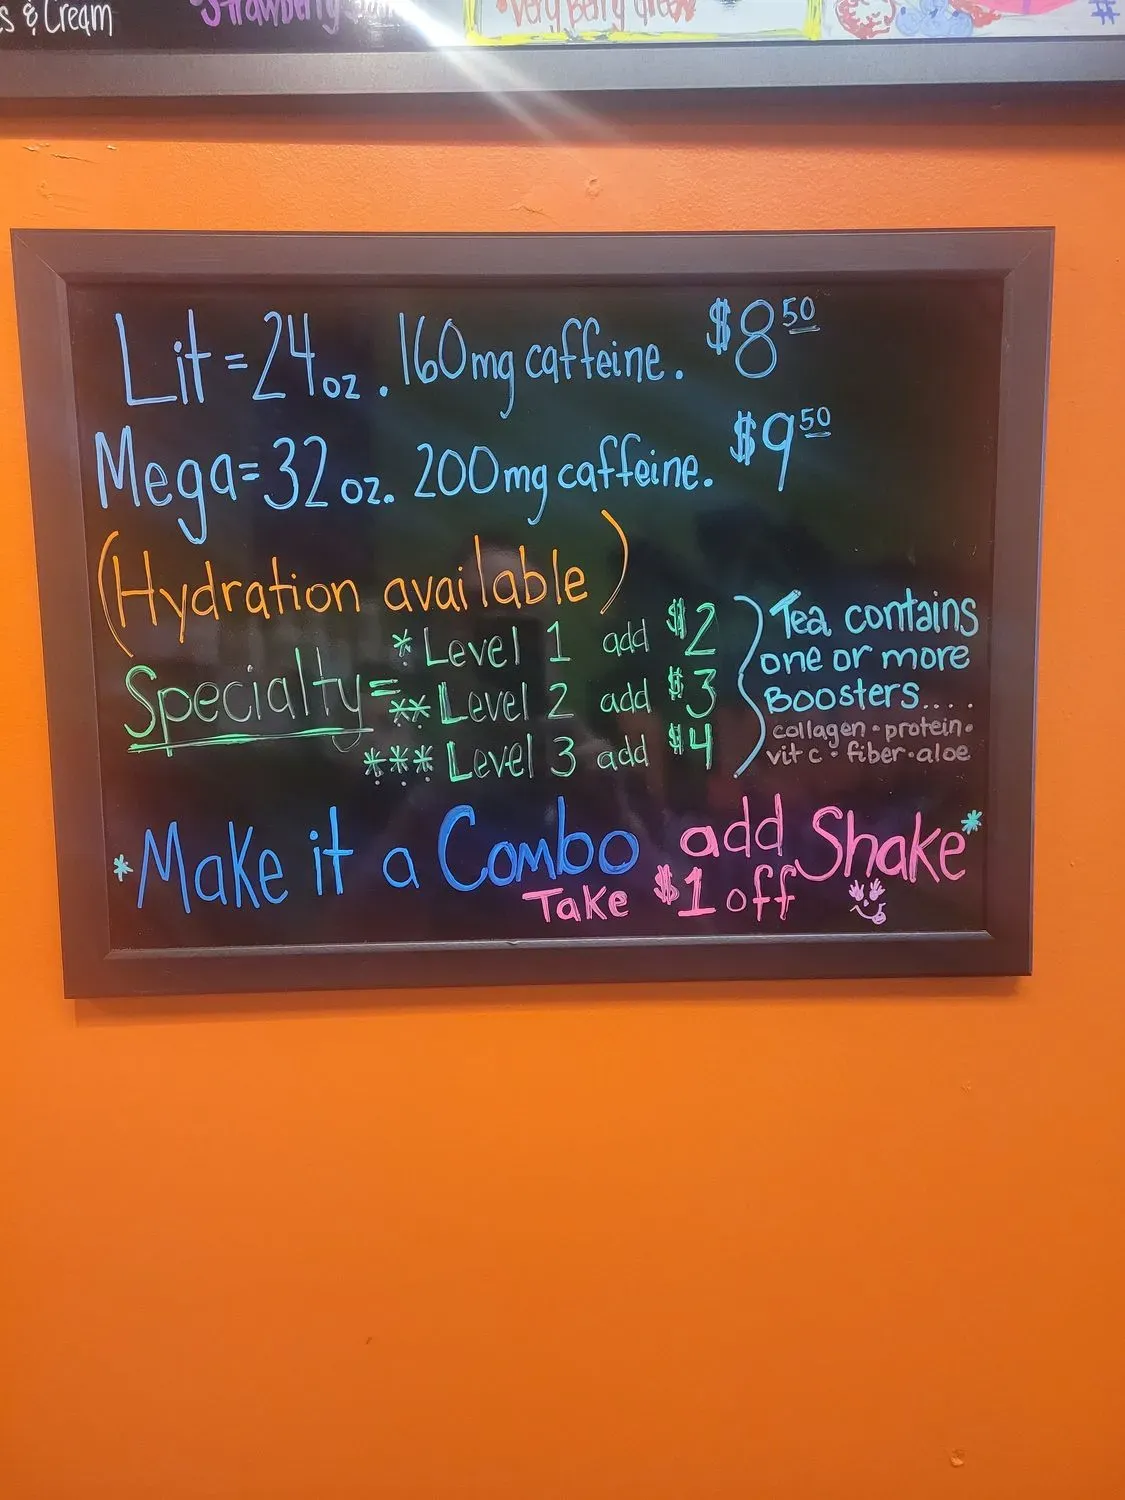 & Cream
Strawberry
• Very Berry
#
Lit = 24 oz. 160mg caffeine. $8 50
Mega = 32 oz. 200mg caffeine. $9 50
(Hydration available)
Specialty =
* Level 1 add $2
** Level 2 add $3
*** Level 3 add $4
Tea contains
one or more
Boosters....
collagen • protein •
vit c • fiber • aloe
*Make it a Combo add Shake*
Take $1 off